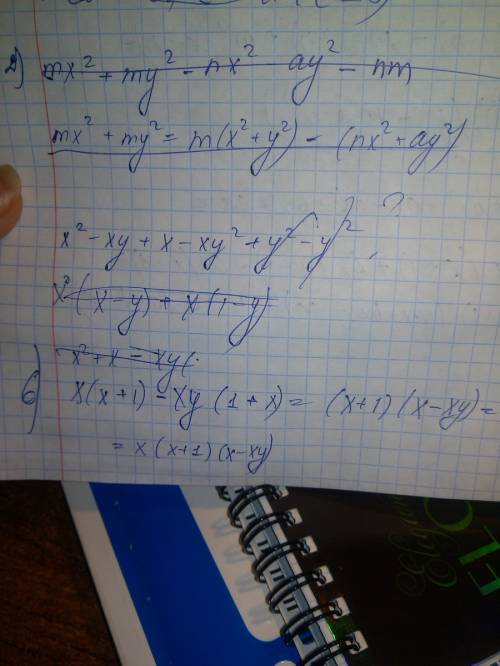 2) mx² + my² - nx² ay² - nm
mx² + my² = m(x² + y²) - (nx² + ay²)
x² - xy + x - xy² + y² - y² ?
x²(x-y) + x(1-y)
x² + x - xy(
6) x(x+1) - xy (1+x) = (x+1)(x-xy) =
= x(x+1)(x-xy)